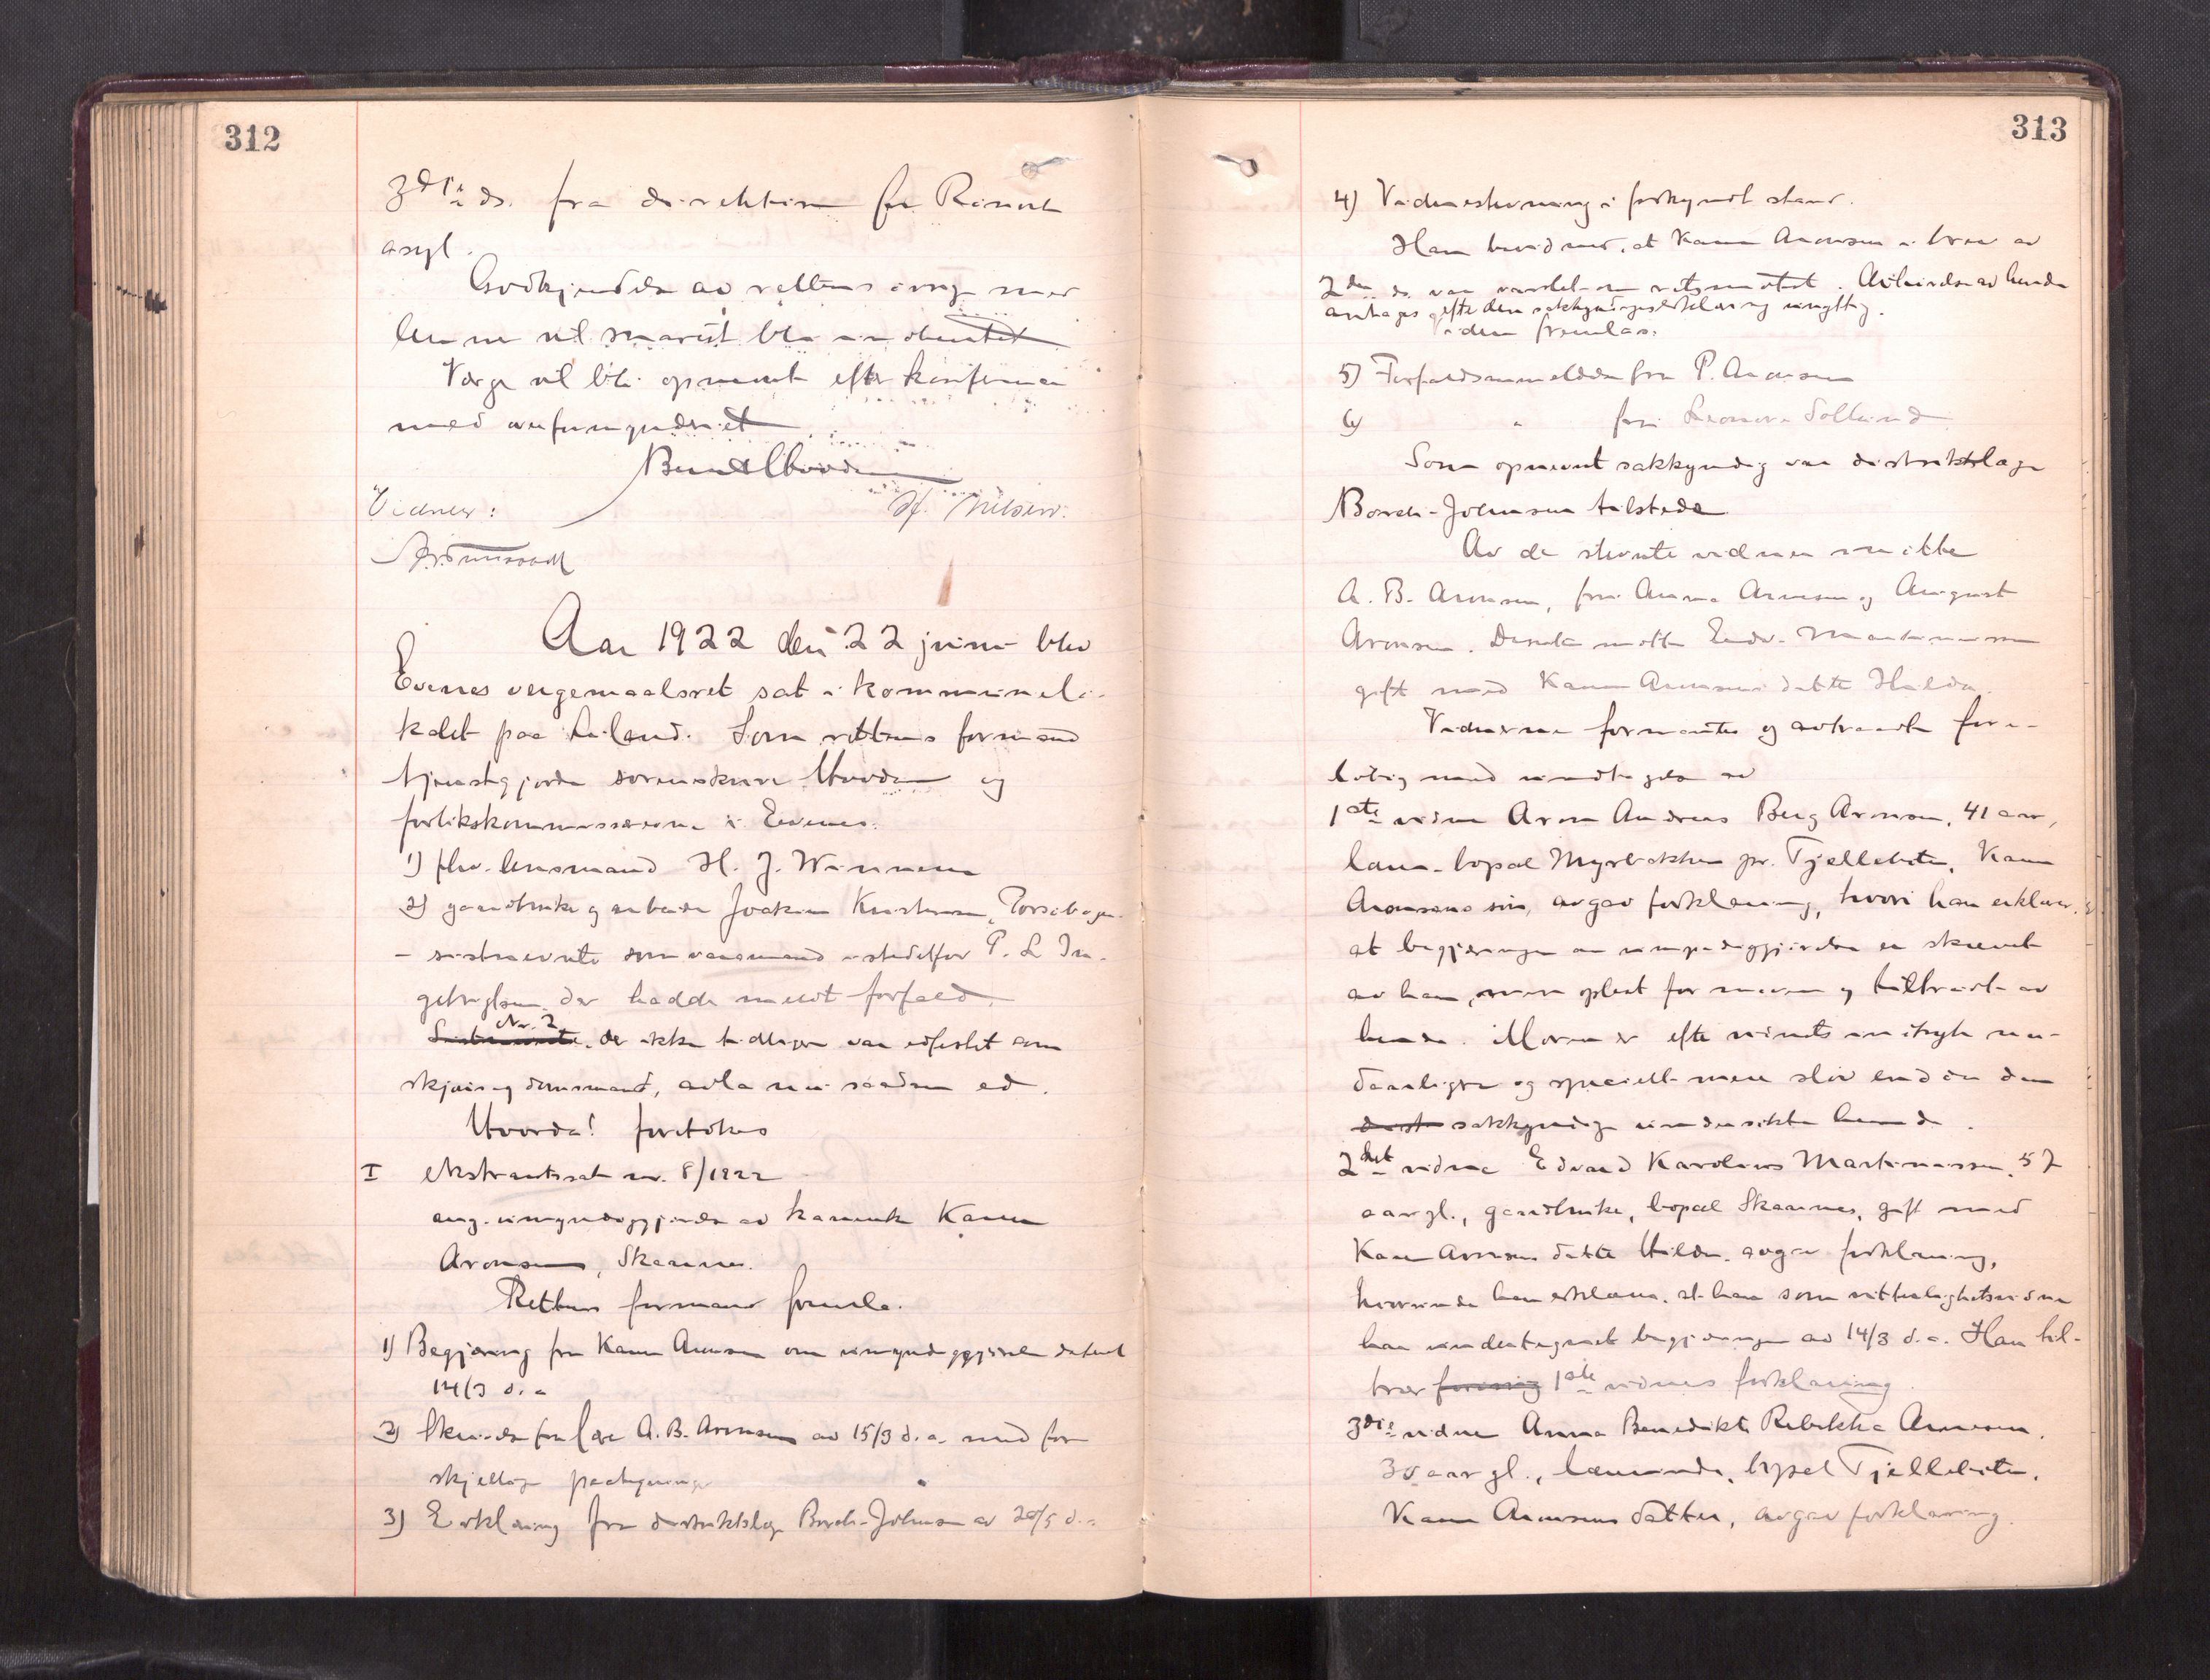 312
3die ds. fra direktøren for Rønvik
asyl.
Godkjendelse av rettens øvrige med
lemmer vil snarest bli indhentet
Verge vil bli opnævnt efter konferance
med overformynderiet
Bernt Hovde
Vidner: H. Nilsen.
Aar 1922 den 22 juni blev
Evenes vergemaalsret sat i kommunelo-
kalet paa Liland. Som rettens formand
tjenstgjorde sorenskriver Hovde og
forlikskommissærerne i Evenes:
1) fhv. lensmand H. J. Winnem
2) gaardbruker og arbeider Joakim Kristensen,
- sistnævnte som varamand istedetfor P. L. In-
gebrigtsen der hadde meldt forfald.
Sistnævnte Nr. 2, der ikke tidligere var edfæstet som
skjøns og domsmand, avla nu saadan ed.
Hvorda! foretokes
I ekstraretssak nr. 8/1922
ang. umyndiggjørelse av kaarenke Karen
Aronsen, Skaanes.
Rettens formand fremla.
1) Begjæring fra Karen Aronsen om umyndiggjørelse datert
14/3 d. a
2) Skrivelse fra A. B. Aronsen av 15/3 d. a. med for
skjellige paategninger
3) Erklæring fra distriktslæge Borch-Johnsen av 20/5 d. a
313
4) Vidnestevning i forkyndt stand.
Han bevidnet, at Karen Aronsen i brev av
2den ds. var varslet om retsmøtet. Avhørelse av hende
antages efter den sakkyndiges erklæring unyttig.
iden fremlas.
5) Forfaldsanmeldelse fra P. Aronsen
6) " fra Leonora Solland
Som opnævnt sakkyndig var distriktslæge
Borch-Johnsen tilstede
Av de stevnte vidner møtte
A. B. Aronsen, fru Anna Arnesen og August
Aronsen. Desuten møtte Edv. Martinussen
gift med Karen Aronsens datter Hilda.
Vidnerne formantes og avtraadte fore-
løbig med undtagelse av
1ste vidne Aron Andreas Berg Aronsen, 41 aar,
lærer, bopæl Myrbakken pr. Tjeldebotn, Karen
Aronsens søn, avgav forklaring, hvori han erklærer,
at begjæringen om umyndiggjørelse er skrevet
av ham, men oplest for moren og tiltraadt av
hende. Moren er efter vidnets indtryk nu
daarligere og specielt mere sløv end da den
sakkyndige undersøkte hende.
2det vidne Edvard Karolius Martinussen, 57
aar gl., gaardbruker, bopæl Skaanes, gift med
Karen Aronsens datter Hilda. avgav forklaring,
hvorunder han erklærer, at han som vitterlighetsvidne
har undertegnet begjæringen av 14/3 d. a. Han til-
træer 1ste vidnes forklaring.
3die vidne Anna Benedikte Rebekka Arnesen,
aar gl., lærerinde, bopæl Tjeldebotn,
Karen Aronsens datter, avgav forklaring.